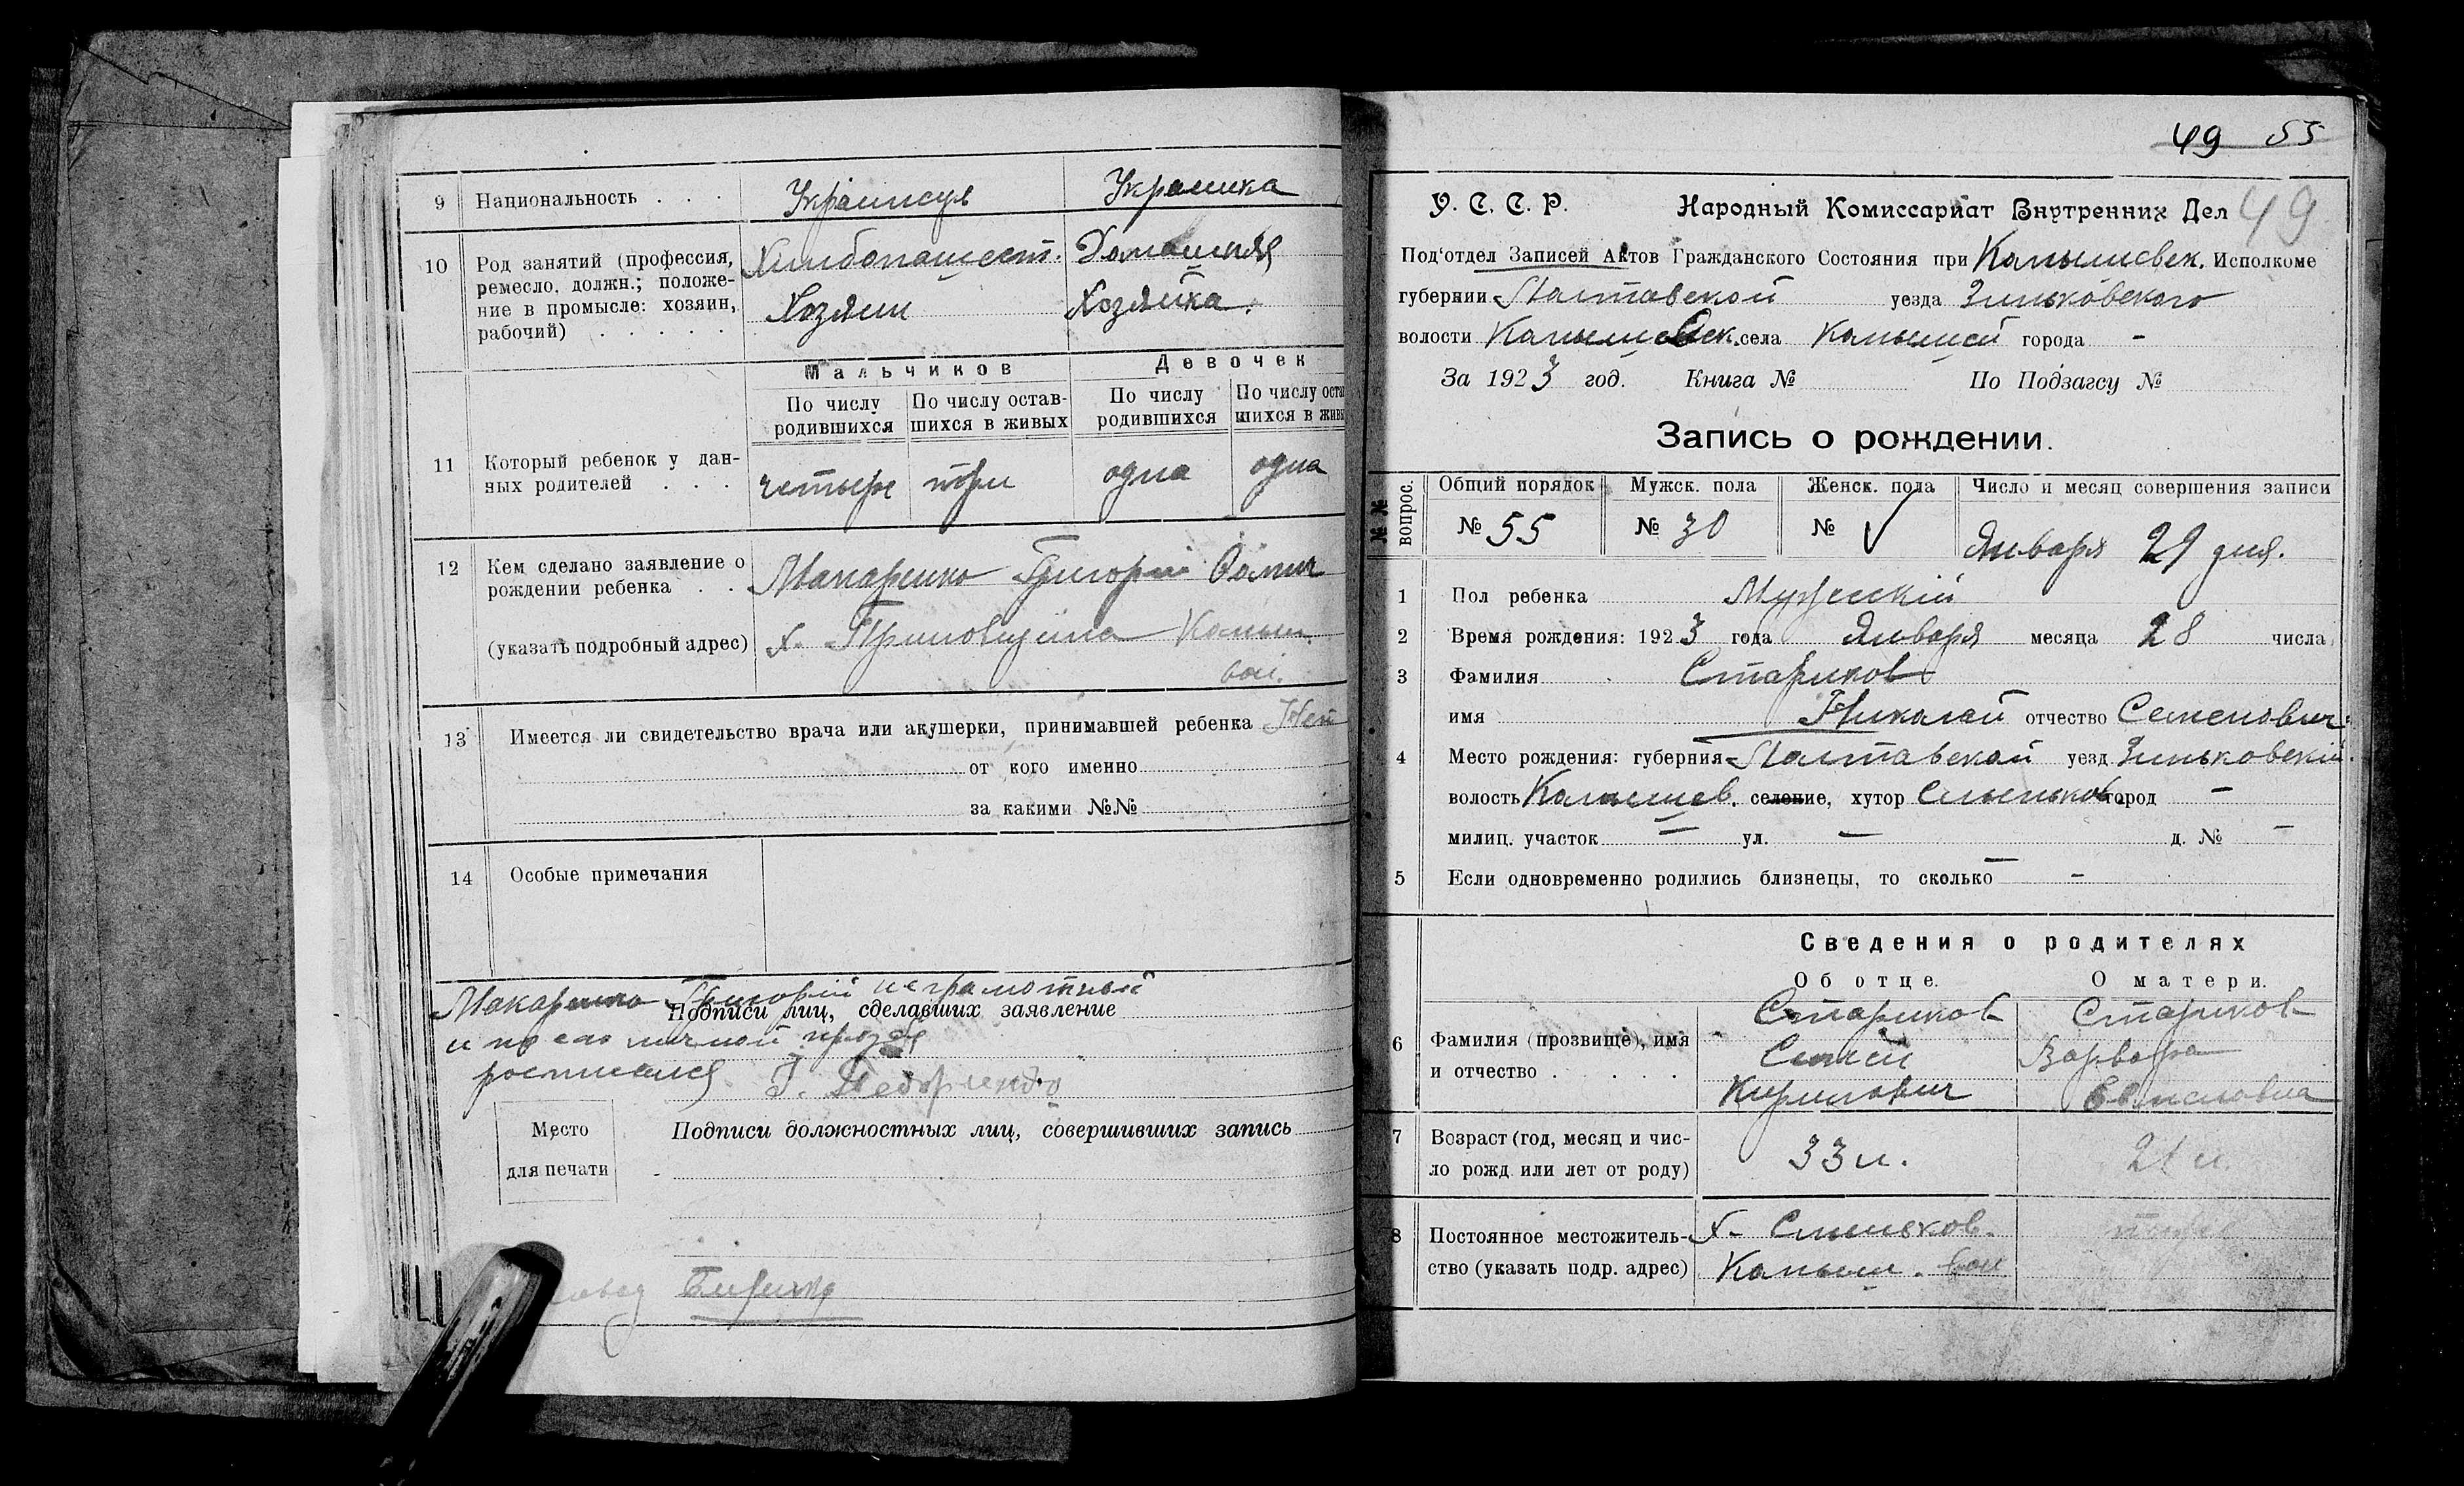 9 Национальность . . . Украинец Украинка
10 Род занятий (профессия, Хлебопашест. Домашняя
ремесло, должн.; положе-
ние в промысле: хозяин, Хозяин Хозяйка.
рабочий) . . . . .
Мальчиков Девочек
По числу По числу остав- По числу По числу оста
родившихся шихся в живых родившихся шихся в живы
11 Который ребенок у дан-
ных родителей . . . четыре три одна одна
12 Кем сделано заявление о
рождении ребенка . . Макаренко Григорій
(указать подробный адрес) х.
вол.
13 Имеется ли свидетельство врача или акушерки, принимавшей ребенка Нет
от кого именно
за какими №№
14 Особые примечания
Макаренко Григорій неграмотный
Подписи лиц, сделавших заявление
и по его личной прозбе
росписался
Место
для печати
Подписи должностных лиц, совершивших запись
49 55
У. С. С. Р. Народный Комиссариат Внутренних Дел 49
Под'отдел Записей Актов Гражданского Состояния при Исполкоме
губернии Полтавской уезда Зиньковского
волости села города -
За 1923 год. Книга № По Подзагсу №
Запись о рождении.
№№ вопрос. Общий порядок Мужск. пола Женск. пола Число и месяц совершения записи
№ 55 № 30 № V Января 29 дня.
1 Пол ребенка Мужескій
2 Время рождения: 1923 года Января месяца 28 числа
3 Фамилия Стариков
имя Николай отчество Семенович
4 Место рождения: губерния Полтавской уезд Зиньковскій.
волость селение, хутор город -
милиц. участок — ул. — д. № —
5 Если одновременно родились близнецы, то сколько -
Сведения о родителях
Об отце. О матери.
6 Фамилия (прозвище), имя Стариков Стариков
и отчество . . . . . Семен Варвара
Кирилович
7 Возраст (год, месяц и чис-
ло рожд. или лет от роду) 33 л. 21 л.
8 Постоянное местожитель- х.
ство (указать подр. адрес) вол